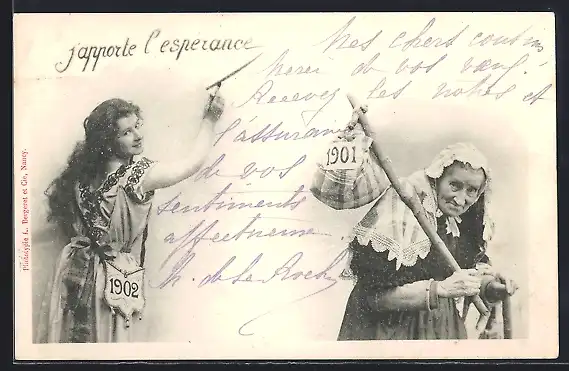 j'apporte l'esperance
Mes chers cousins
merci de vos vœux!
Recevez les notres et
l'assurance
de vos
sentiments
affectueux
de la Roche
1901
1902
Phototypie L. Bergeret et Cie, Nancy.